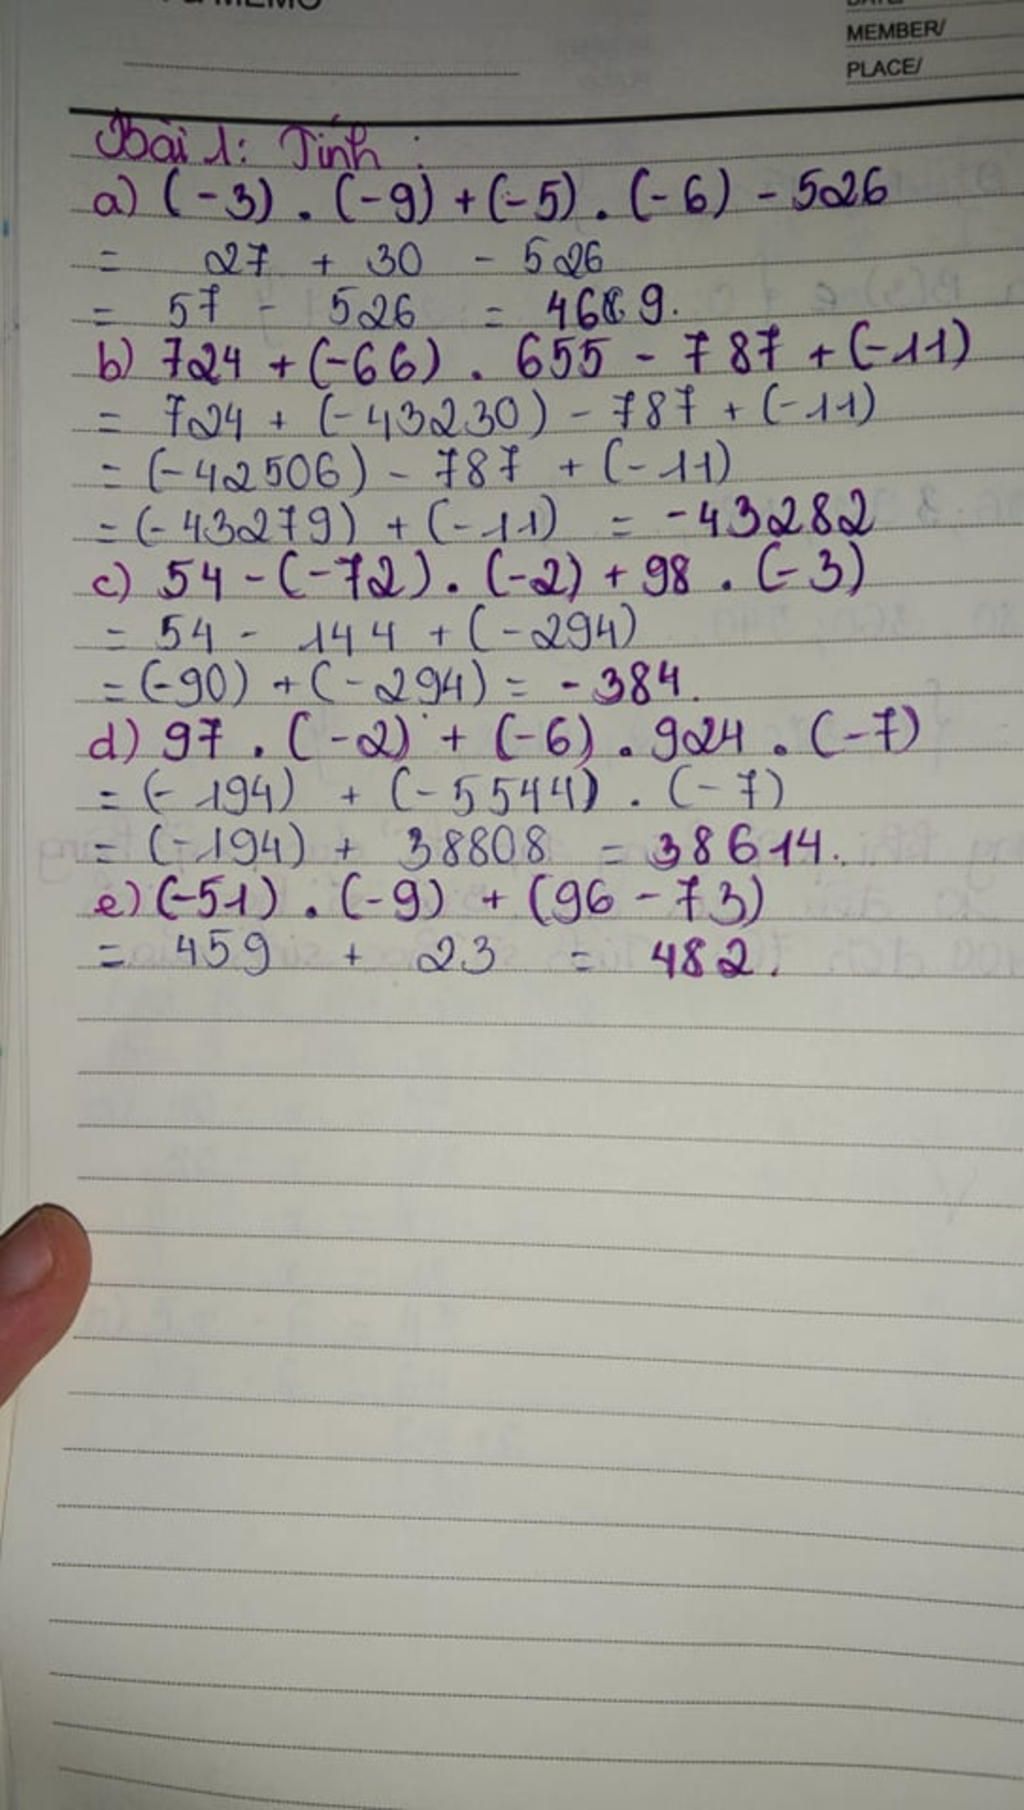 MEMO
MEMBER/
PLACE/
Bài 1: Tính:
a) (-3) . (-9) + (-5) . (-6) - 526
= 27 + 30 - 526
= 57 - 526 = 469.
b) 724 + (-66) . 655 - 787 + (-11)
= 724 + (-43230) - 787 + (-11)
= (-42506) - 787 + (-11)
= (-43279) + (-11) = -43282
c) 54 - (-72) . (-2) + 98 . (-3)
= 54 - 144 + (-294)
= (-90) + (-294) = -384.
d) 97 . (-2) + (-6) . 924 . (-7)
= (-194) + (-5544) . (-7)
= (-194) + 38808 = 38614.
e) (-51) . (-9) + (96 - 73)
= 459 + 23 = 482.